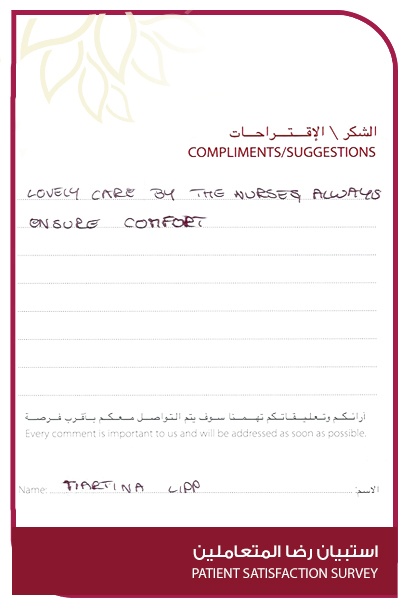 الشكر \ الإقتراحات
COMPLIMENTS/SUGGESTIONS
LOVELY CARE BY THE NURSES, ALWAYS
ENSURE COMFORT
آرائكم وتعليقاتكم تهمنا سوف يتم التواصل معكم بأقرب فرصة
Every comment is important to us and will be addressed as soon as possible.
Name: MARTINA LIPP الاسم:
استبيان رضا المتعاملين
PATIENT SATISFACTION SURVEY